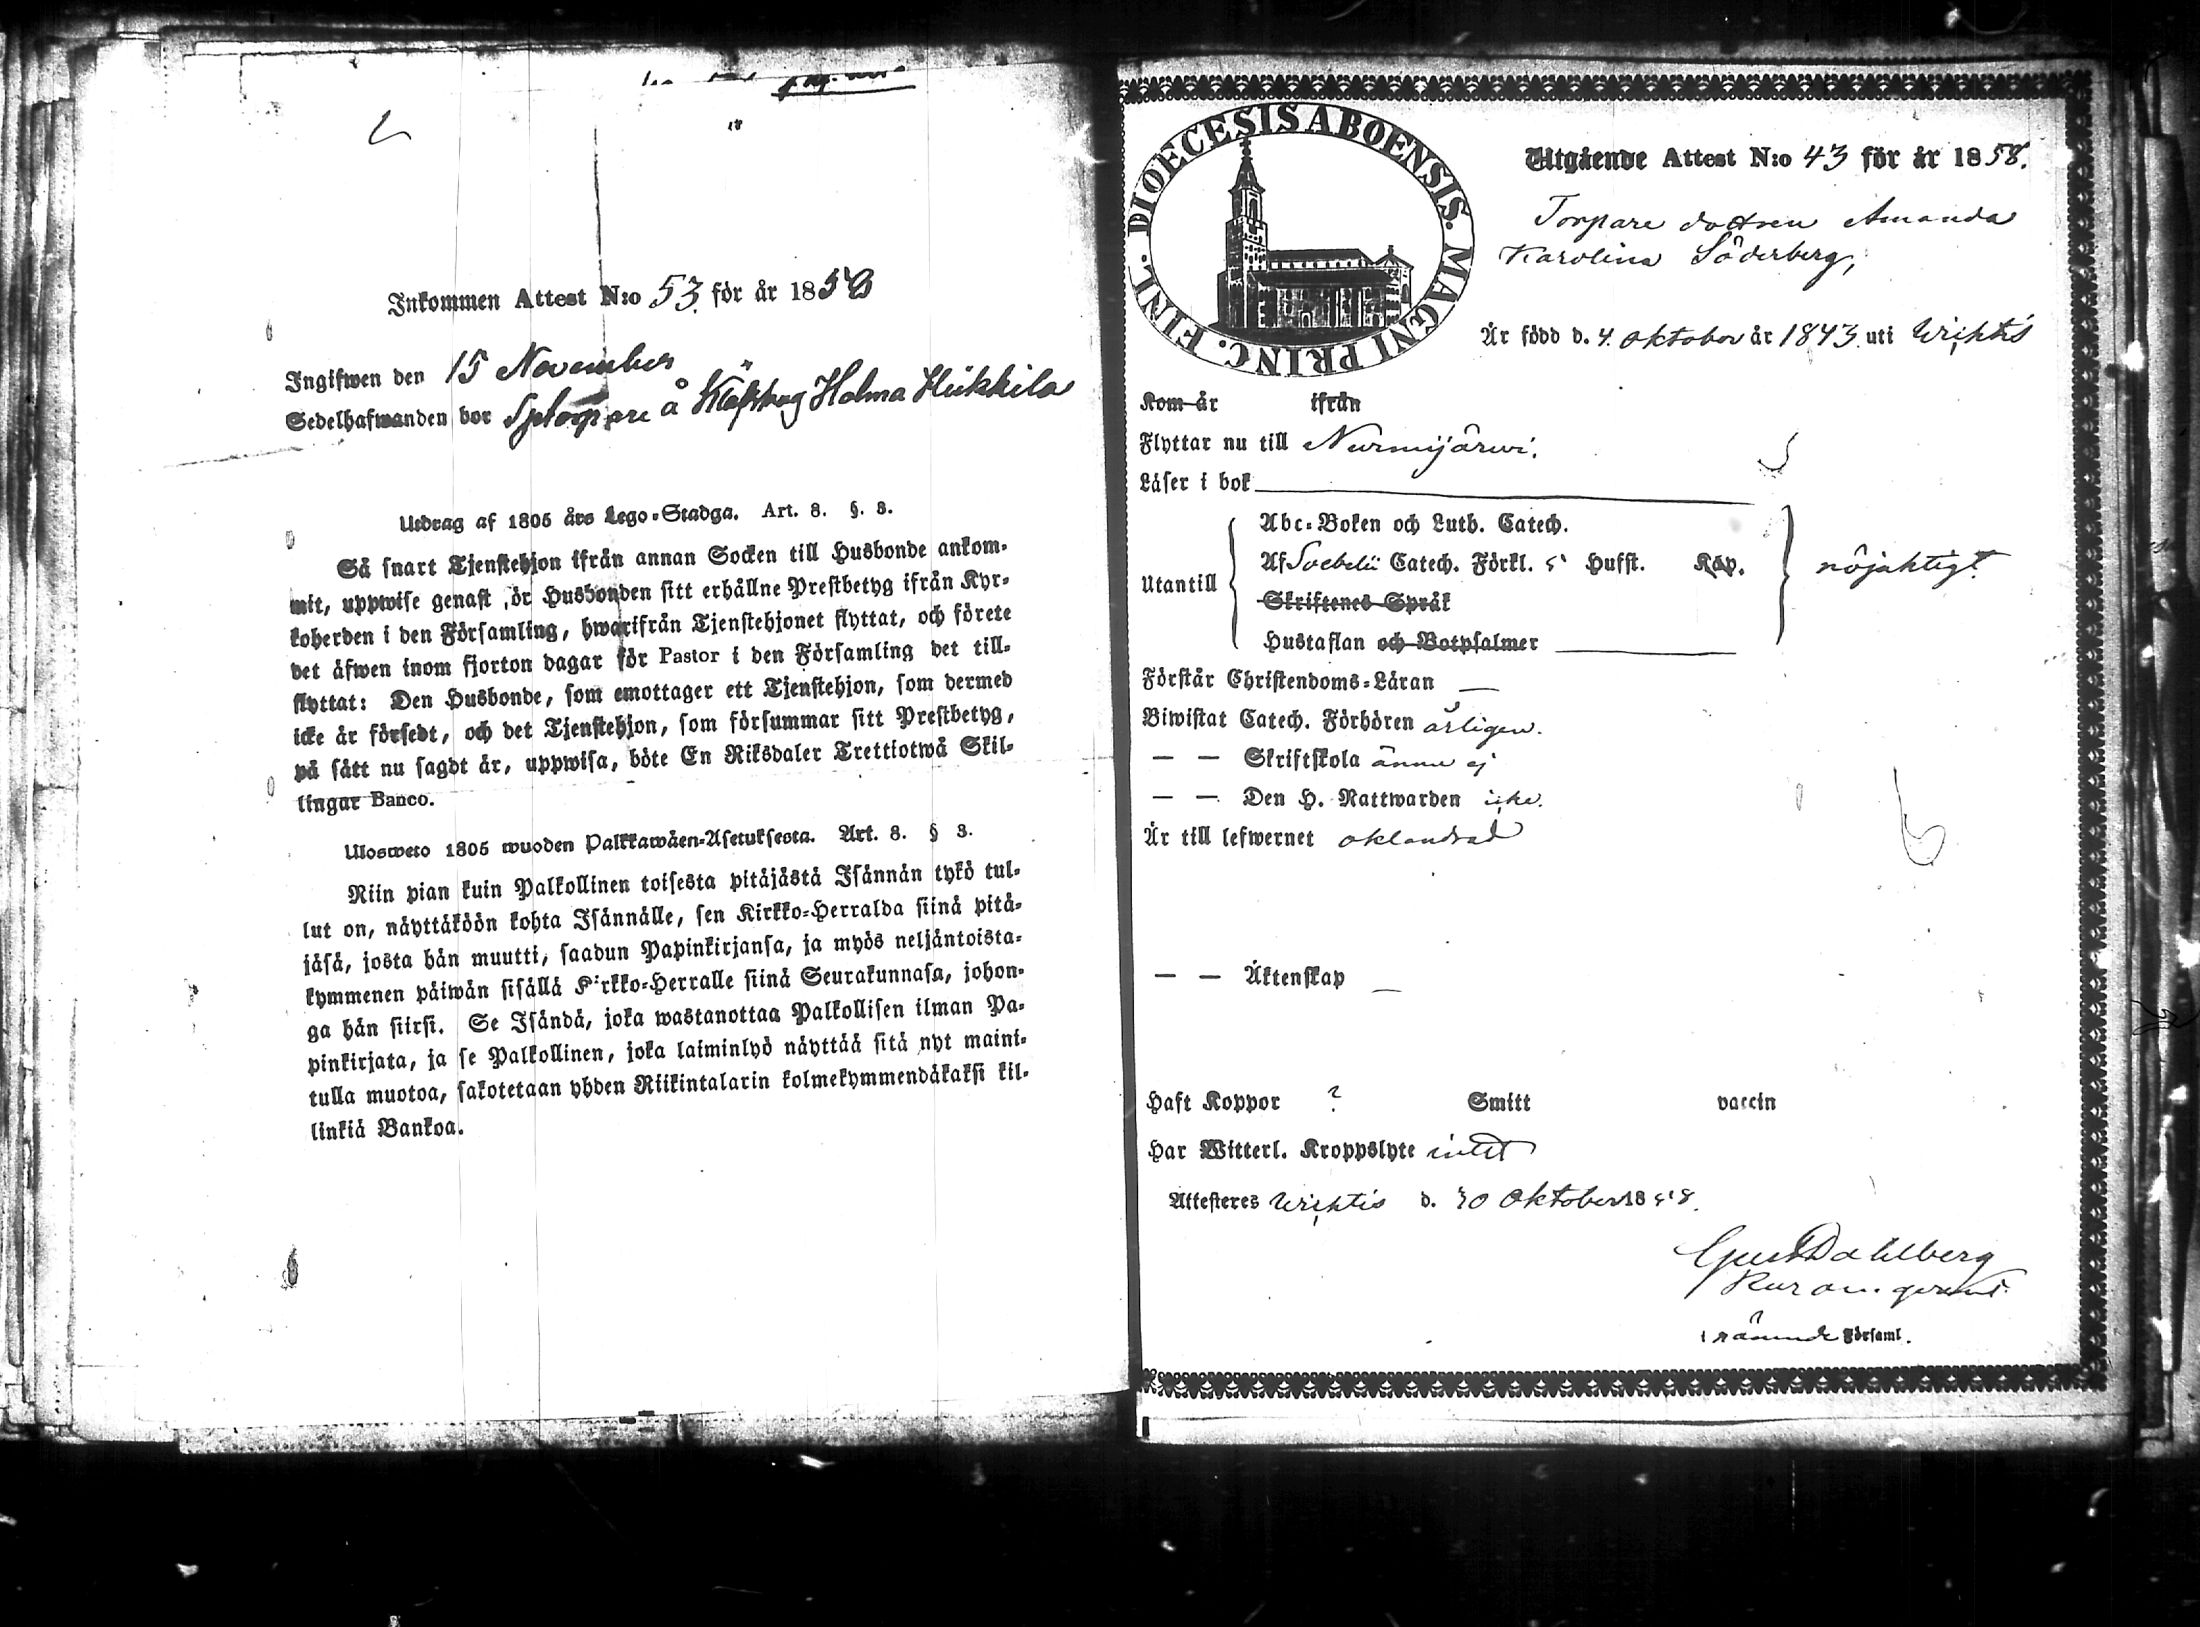 Inkommen Attest N:o 53. för år 1858
Ingifwen den 15 November
Sedelhafwanden bor å Holma Heikkilä
Utdrag af 1805 års Lego-Stadga. Art. 8. §. 3.
Så snart Tjenstehjon ifrån annan Socken till Husbonde ankom-
mit, uppwise genast för Husbonden sitt erhållne Prestbetyg ifrån Kyr-
koherden i den Församling, hwarifrån Tjenstehjonet flyttat, och förete
det äfwen inom fjorton dagar för Pastor i den Församling det till-
flyttat: Den Husbonde, som emottager ett Tjenstehjon, som dermed
icke är försedt, och det Tjenstehjon, som försummar sitt Prestbetyg,
på sätt nu sagdt är, uppwisa, böte En Riksdaler Trettiotwå Skil-
lingar Banco.
Ulosweto 1805 wuoden Palkkawäen-Asetuksesta. Art. 8. § 3.
Niin pian kuin Palkollinen toisesta pitäjästä Isännän tykö tul-
lut on, näyttäköön kohta Isännälle, sen Kirkko-Herralda siinä pitä-
jäsä, josta hän muutti, saadun Papinkirjansa, ja myös neljäntoista-
kymmenen päiwän sisällä Kirkko-Herralle siinä Seurakunnasa, johon-
ga hän siirsi. Se Isändä, joka wastanottaa Palkollisen ilman Pa-
pinkirjata, ja se Palkollinen, joka laiminlyö näyttää sitä nyt maini-
tulla muotoa, sakotetaan yhden Riikintalarin kolmekymmendäkaksi kil-
linkiä Bankoa.
FINL. DIOECESIS ABOENSIS. MAGNI PRINC.
Utgående Attest N:o 43 för år 1858.
Torpare dottren Amanda
Karolina Söderberg,
Är född d. 4 oktober år 1843 uti Wichtis
Kom år ifrån
Flyttar nu till Nurmijärwi.
Läser i bok
Abc-Boken och Luth. Catech.
Utantill Af Soebelii Catech. Förkl. 5 Hufst. Kap. nöjaktigt
Skriftenes Språk
Hustaflan och Botpsalmer
Förstår Christendoms-Läran —
Biwistat Catech. Förhören årligen.
— — Skriftskola ännu ej
— — Den H. Nattwarden icke.
Är till lefwernet oklandrad
— — Äktenskap —
Haft Koppor ? Smitt vaccin
Har Witterl. Kroppslyte intet
Attesteres Wichtis d. 30 Oktober 1858.
Gust Dahlberg
Församl.